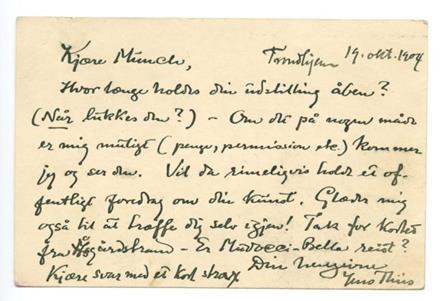 Kjære Munch, Trondhjem 19. okt. 1904
Hvor længe holdes din udstilling åben?
(Når lukkes den?) – Om det på nogen måde
er mig muligt (penge, permission etc) kommer
jeg og ser den. Vil da rimeligvis holde et of-
fentligt foredrag om din kunst. Glæder mig
også til at træffe dig selv igjen! Tak for kortet
fra Åsgårdstrand – Er Mudocci-Bella reist?
Kjære svar med et kort strax Din hengivne
Jens Thiis